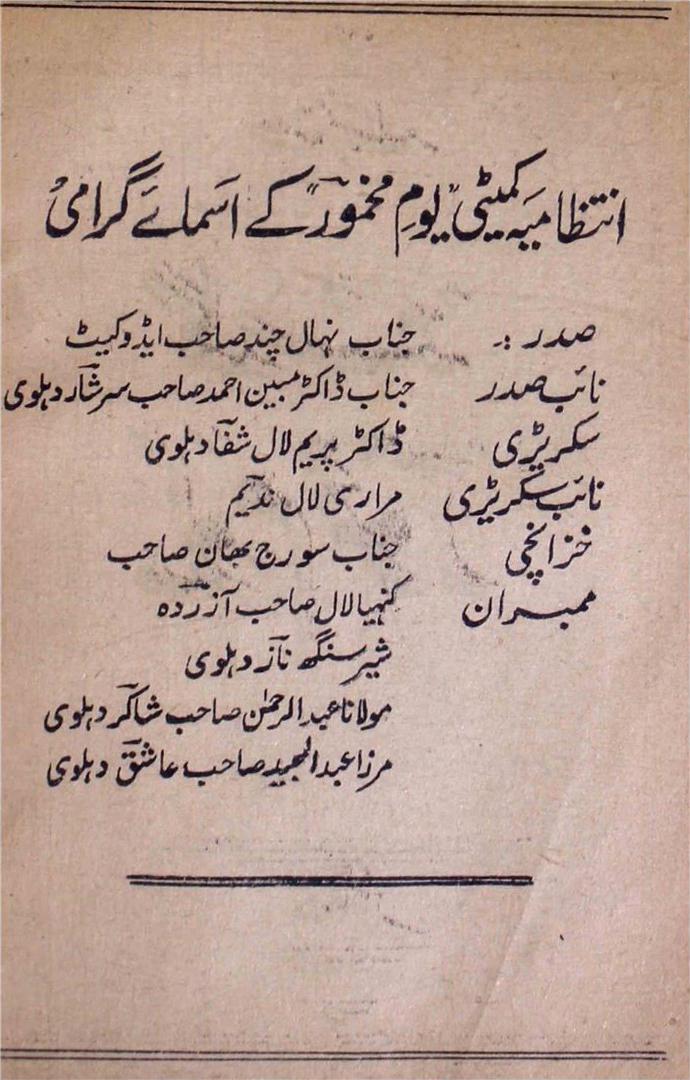 انتظامیہ کمیٹی "یومِ مخمورؔ" کے اسمائے گرامی
صدر :۔ جناب نہال چند صاحب ایڈوکیٹ
نائب صدر جناب ڈاکٹر مبین احمد صاحب سرشارؔ دہلوی
سکریٹری ڈاکٹر پریم لال شفاؔ دہلوی
نائب سکریٹری مراری لال ندیمؔ
خزانچی جناب سورج بھان صاحب
ممبران کنہیا لال صاحب آزردہؔ
شیر سنگھ نازؔ دہلوی
مولانا عبدالرحمٰن صاحب شاکرؔ دہلوی
مرزا عبدالمجید صاحب عاشقؔ دہلوی